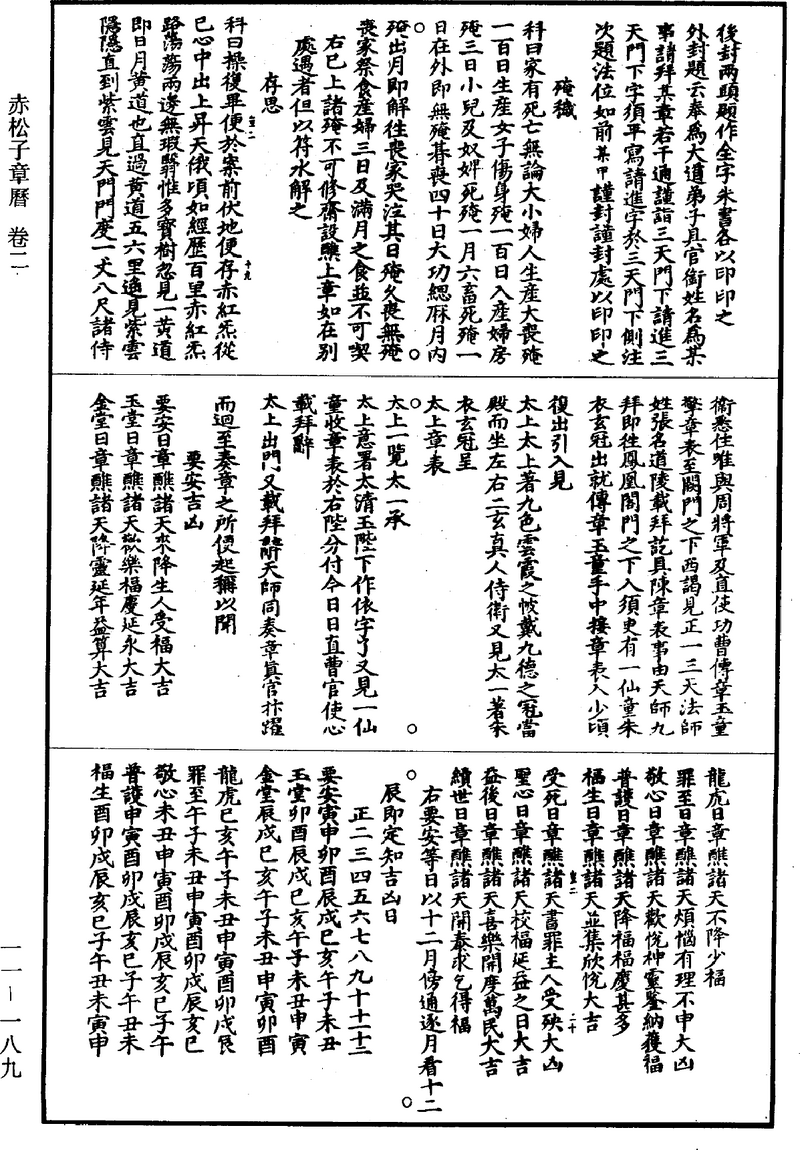 後封兩頭題作全字朱書各以印印之
外封題云奉爲大道弟子具官銜姓名爲某
事請拜某章若干通謹詣三天門下請進三
天門下字須平寫請進字於三天門下側注
次題法位如前某甲謹封謹封處以印印之
殗穢
科曰家有死亡無論大小婦人生産大喪殗
一百日生産女子傷身殗一百日入産婦房
殗三日小兒及奴婢死殗一月六畜死殗一
日在外即無殗朞喪四十日大功緦麻月内
殗出月即解往喪家哭泣其日殗久喪無殗
喪家祭食産婦三日及滿月之食並不可喫
右已上諸殗不可修齋設醮上章如在别
處遇者但以符水解之
存思
科曰操復畢便於案前伏地便存赤紅炁從
已心中出上昇天俄頃如經歷百里赤紅炁
路蕩蕩兩邊無瑕翳惟多寶樹忽見一黄道
即日月黄道也直過黄道五六里遥見紫雲
隠隠直到紫雲見天門門度一丈八尺諸侍
衛悉住唯與周將軍及直使功曹傳章玉童
擎章表至闕門之下西謁見正一三天法師
姓張名道陵載拜訖具陳章表事由天師九
拜即往鳳凰閣門之下入須臾有一仙童朱
衣玄冠出就傳章玉童手中接章表入少頃
復出引入見
太上太上著九色雲霞之帔戴九德之冠當
殿而坐左右二玄真人侍衛又見太一著朱
衣玄冠呈
太上章表
太上一覽太一承
太上意署太清玉陛下作依字了又見一仙
童收章表於右陛分付今日日直曹官使心
載拜辭
太上出門又載拜辭天師同奏章真官抃躍
而迴至奏章之所便起稱以聞
要安吉凶
要安日章醮諸天來降生人受福大吉
玉堂日章醮諸天歡樂福慶延永大吉
金堂日章醮諸天降靈延年益算大吉
龍虎日章醮諸天不降少福
罪至日章醮諸天煩惱有理不申大凶
敬心日章醮諸天歡悅神靈鑒納獲福
普護日章醮諸天降福福慶甚多
福生日章醮諸天並集欣悅大吉
受死日章醮諸天書罪主人受殃大凶
聖心日章醮諸天校福延益之日大吉
益後日章醮諸天喜樂開度萬民大吉
續世日章醮諸天開泰求乞得福
右要安等日以十二月傍通逐月看十二
辰即定知吉凶日
正二三四五六七八九十十一十二
要安寅申卯酉辰戌巳亥午子未丑
玉堂卯酉辰戌巳亥午子未丑申寅
金堂辰戌巳亥午子未丑申寅卯酉
龍虎巳亥午子未丑申寅酉卯戌辰
罪至午子未丑申寅酉卯戌辰亥巳
敬心未丑申寅酉卯戌辰亥巳子午
普護申寅酉卯戌辰亥巳子午丑未
福生酉卯戌辰亥巳子午丑未寅申
赤松子章曆 卷二
一一—一八九